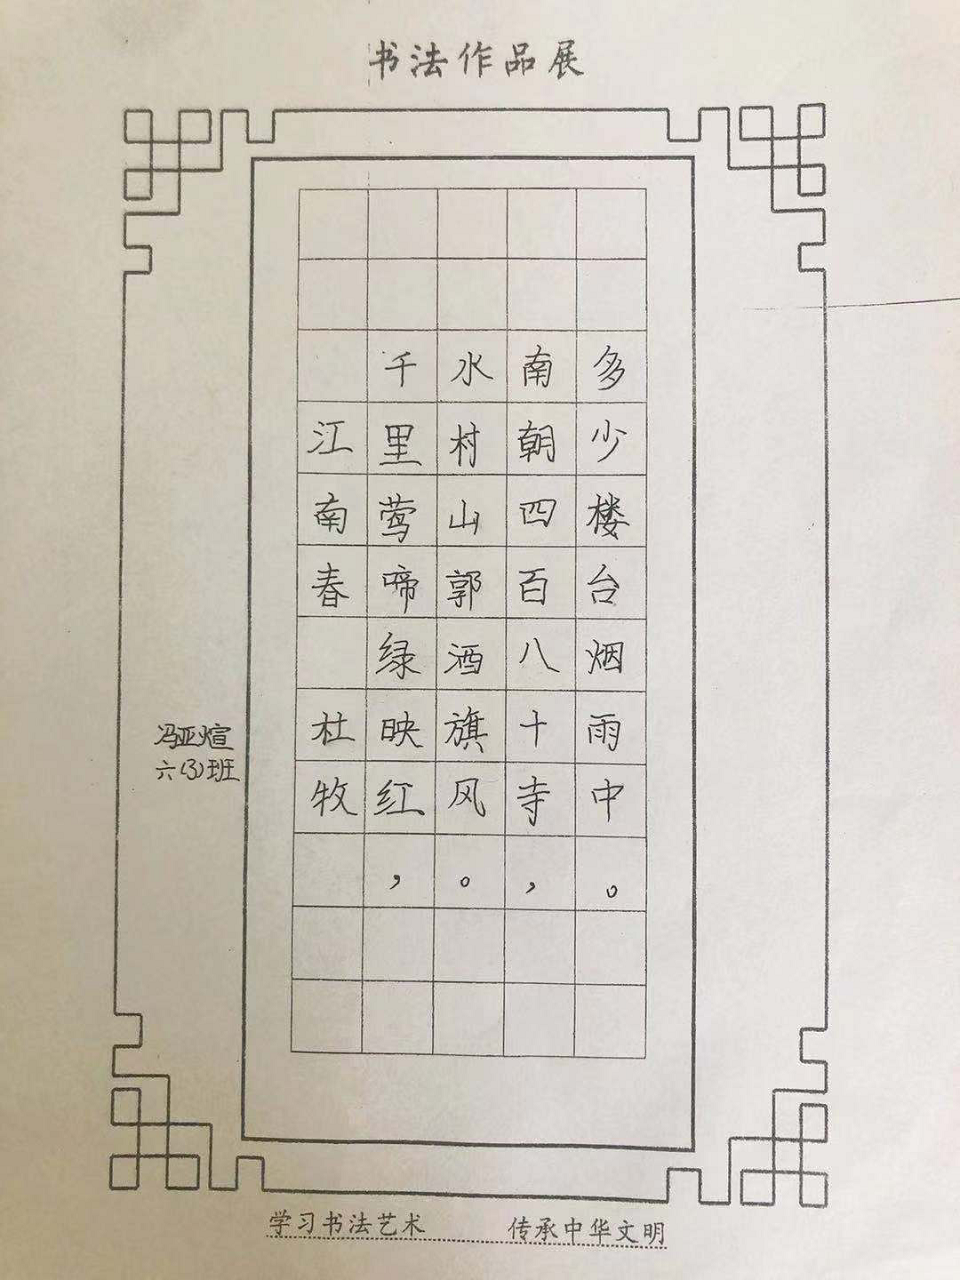 书法作品展
江南春 杜牧
千里莺啼绿映红，
水村山郭酒旗风。
南朝四百八十寺，
多少楼台烟雨中。
冯亚煊
六(3)班
学习书法艺术 传承中华文明